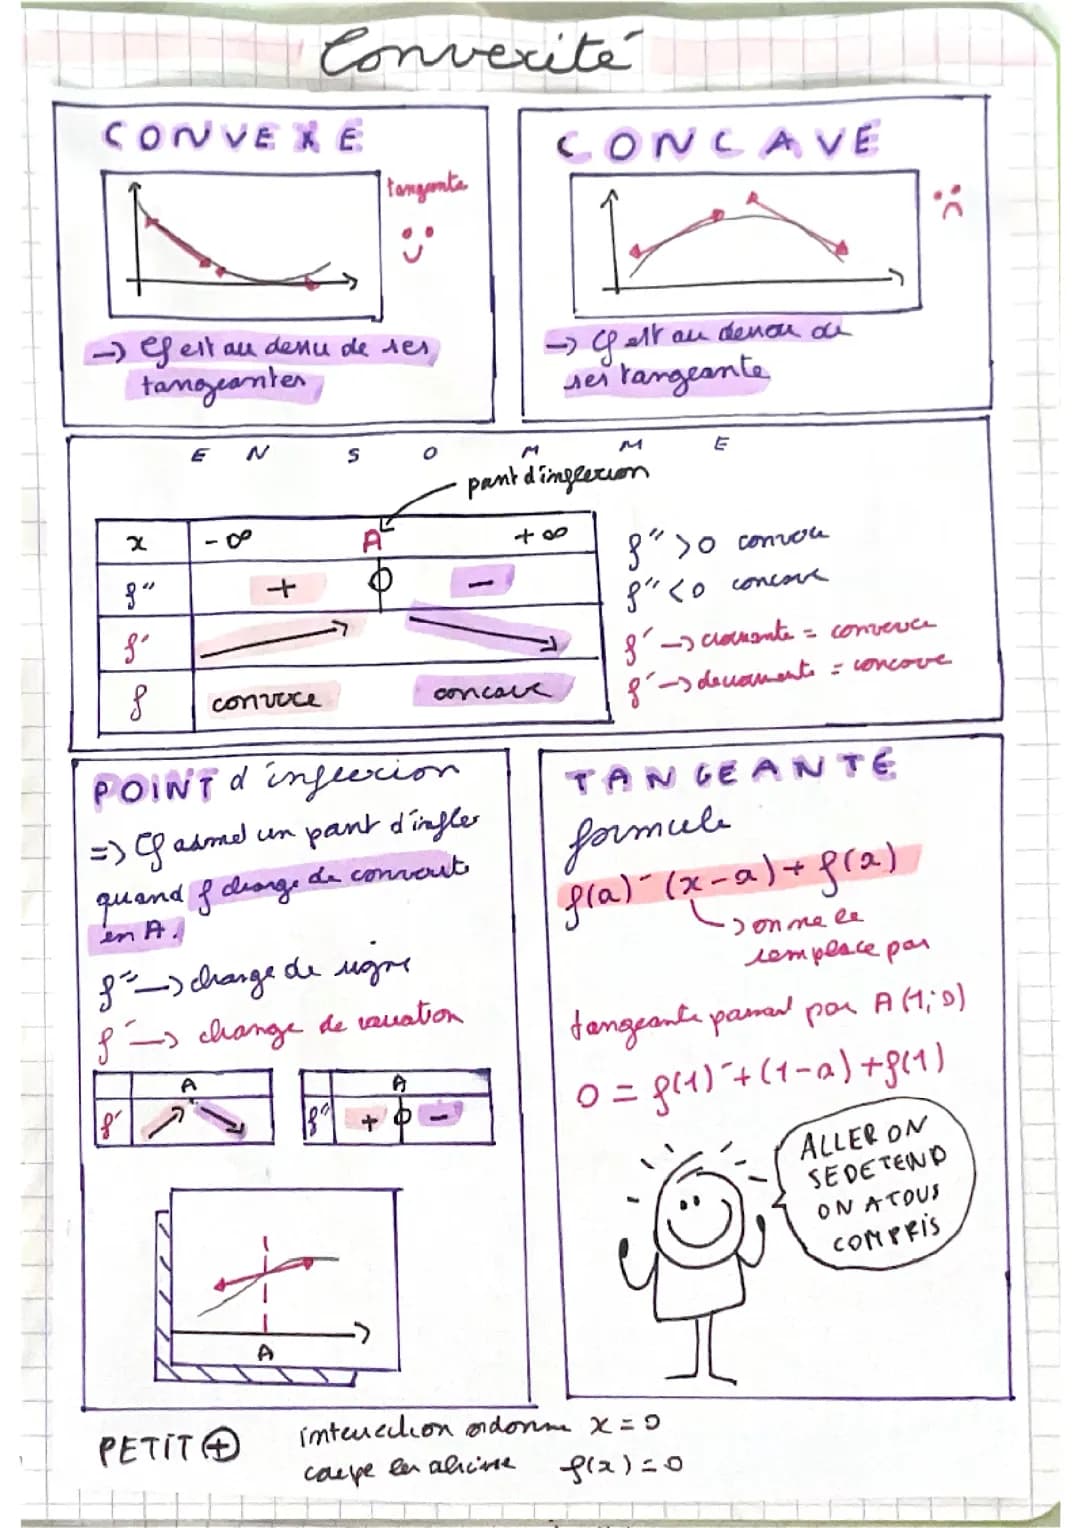 Convexité
CONVEXE
tangente
→ Cf est au dessu de ses
tangeantes
CONCAVE
→ Cf est au dessou de
ses tangeante
EN SOMME
point d'inflexion
x -∞ A +∞
f'' + 0 -
f'
f convexe concave
f'' > 0 convexe
f'' < 0 concave
f' → croissante = convexe
f' → decroissante = concave
POINT d'inflexion
=> Cf admet un point d'inflex
quand f change de convexité
en A.
f'' → change de signe
f' → change de variation
A
f'
A
f'' + 0 -
A
TANGEANTE
formule
f(a)' (x-a) + f(a)
→ on ne le
remplace pas
tangeante passant par A (1;0)
0 = f(1)' + (1-a) + f(1)
ALLER ON
SE DETEND
ON A TOUS
COMPRIS
PETIT +
intersection ordonne x = 0
coupe les abscisse f(x) = 0